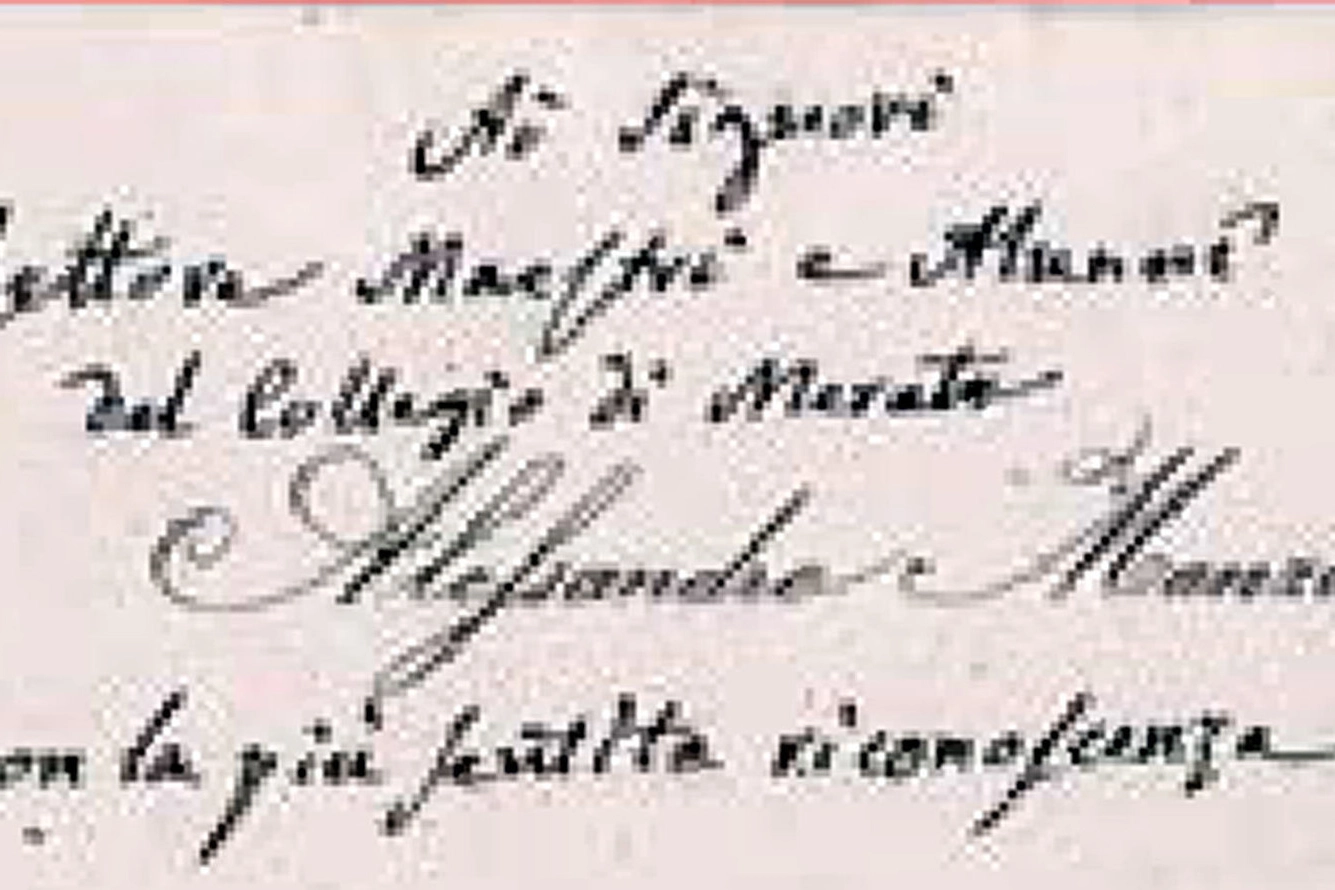 Ai Signori
Rettore Maestri e Alunni
Del Collegio di Merate
Alessandro Manzoni
con la più sentita riconoscenza